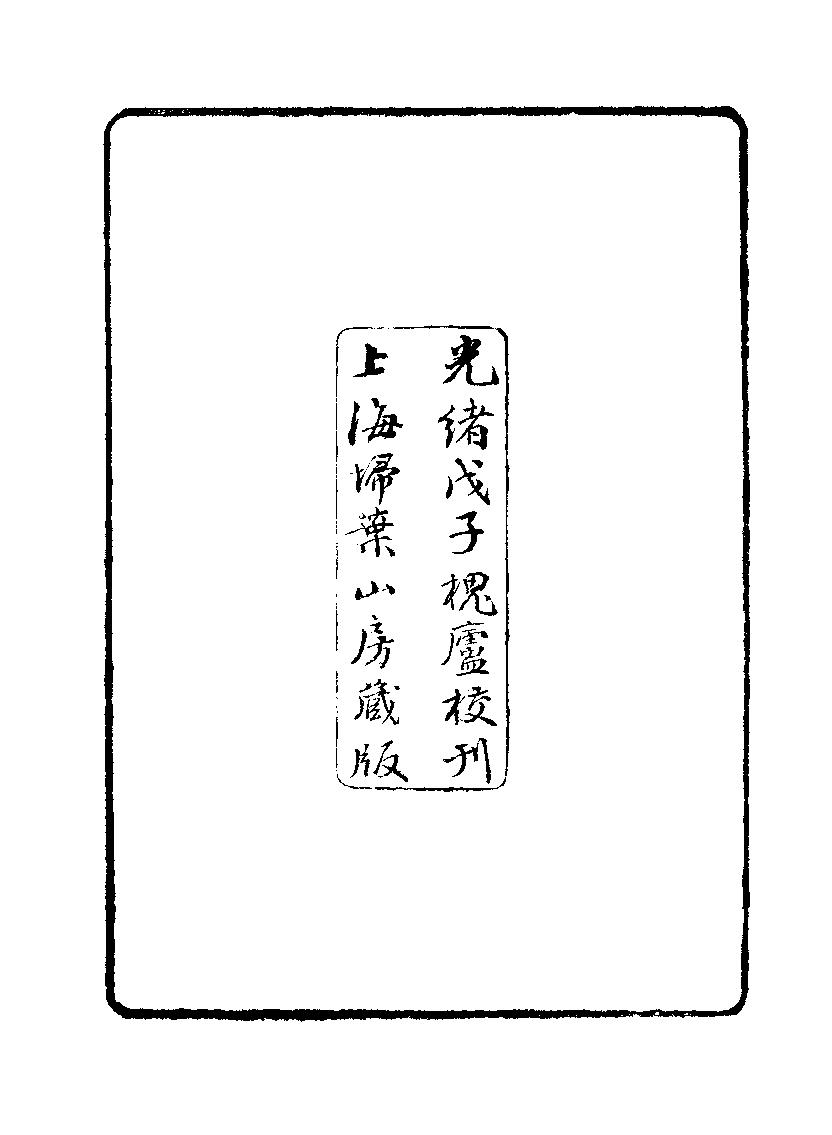 光緒戊子槐廬校刊
上海埽葉山房藏版